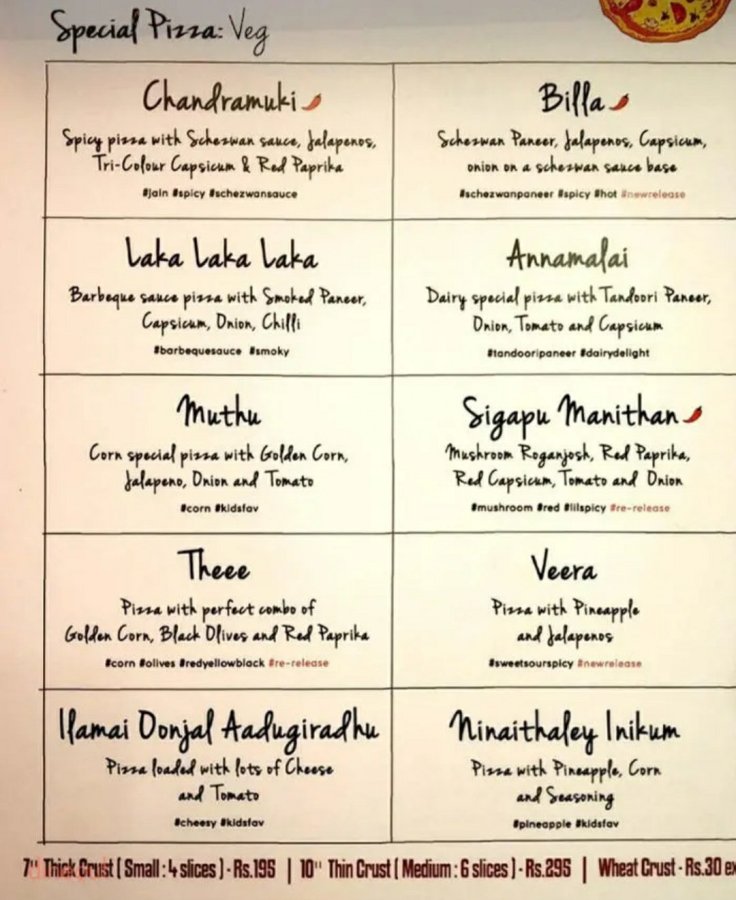 Special Pizza: Veg
Chandramuki
Spicy pizza with Schezwan sauce, Jalapenos,
Tri-Colour Capsicum & Red Paprika
#jain #spicy #schezwansauce
Billa
Schezwan Paneer, Jalapenos, Capsicum,
onion on a schezwan sauce base
#schezwanpaneer #spicy #hot #newrelease
Laka Laka Laka
Barbeque sauce pizza with Smoked Paneer,
Capsicum, Onion, Chilli
#barbequesauce #smoky
Annamalai
Dairy special pizza with Tandoori Paneer,
Onion, Tomato and Capsicum
#tandooripaneer #dairydelight
Muthu
Corn special pizza with Golden Corn,
Jalapeno, Onion and Tomato
#corn #kidsfav
Sigapu Manithan
Mushroom Roganjosh, Red Paprika,
Red Capsicum, Tomato and Onion
#mushroom #red #lilspicy #re-release
Theee
Pizza with perfect combo of
Golden Corn, Black Olives and Red Paprika
#corn #olives #redyellowblack #re-release
Veera
Pizza with Pineapple
and Jalapenos
#sweetsourspicy #newrelease
Ilamai Oonjal Aadugiradhu
Pizza loaded with lots of Cheese
and Tomato
#cheesy #kidsfav
Ninaithaley Inikum
Pizza with Pineapple, Corn
and Seasoning
#pineapple #kidsfav
7" Thick Crust ( Small : 4 slices ) - Rs.195 | 10" Thin Crust ( Medium : 6 slices ) - Rs.295 | Wheat Crust - Rs.30 ex